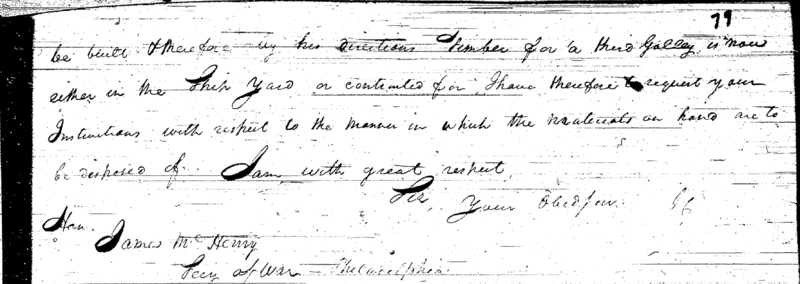 79
be built & therefore by his directions Timber for a third Galley is now
either in the Ship Yard or contracted for, I have therefore to request your
Instructions with respect to the manner in which the materials on hand are to
be disposed of. I am, with great respect,
Sir, Your Obed
Hon.
James McHenry
Secy of War Philadelphia